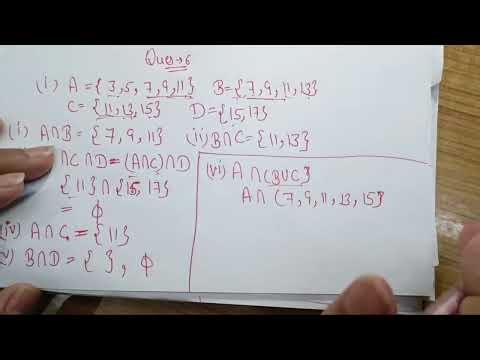 Ques→6
(i) A = {3,5, 7,9,11} B={7,9,11,13}
C = {11,13,15} D={15,17}
(i) A∩B = {7, 9, 11} (ii) B∩C = {11,13}
∩C∩D=(A∩C)∩D
{11}∩{15, 17}
= ϕ
(iv) A∩C = {11}
v) B∩D = { } , ϕ
(vi) A∩(B∪C)
A∩ {7, 9, 11, 13, 15}